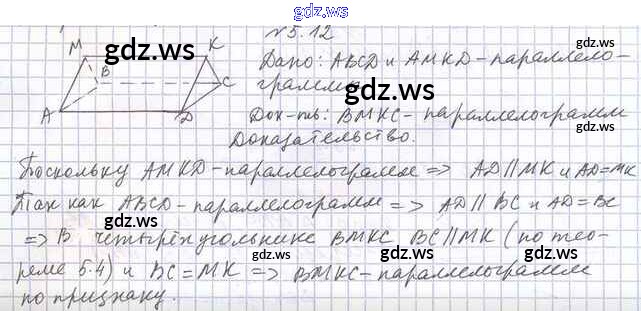 gdz.ws
№5.12
M
K
gdz.ws
B
C
A
D
gdz.ws
Дано: ABCD и AMKD - параллело-
граммы gdz.ws
Док-ть: BMKC - параллелограмм
Доказательство.
gdz.ws
Поскольку AMKD - параллелограмм => AD || MK и AD = MK
gdz.ws
Так как ABCD - параллелограмм => AD || BC и AD = BC
gdz.ws
=> В четырёхугольнике BMKC BC || MK (по тео-
gdz.ws
реме 5.4) и BC = MK => BMKC - параллелограмм
gdz.ws
по признаку.
gdz.ws